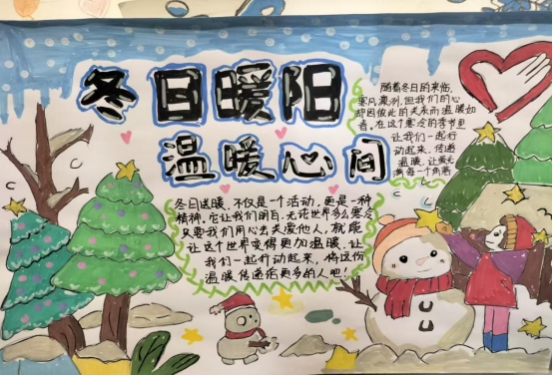 冬日暖阳
温暖心间
随着冬日的来临,
寒风凛冽,但我们的心
却因彼此的关系而温暖如
春。在这个寒冷的季节里
让我们一起行
动起来,传递
温暖,让爱充
满每一个角落
冬日送暖,不仅是一个活动,更是一种
精神。它让我们明白,无论世界多么寒冷
只要我们用心去关爱他人,就能
让这个世界变得更加温暖。让
我们一起行动起来,将这份
温暖传递给更多的人吧!